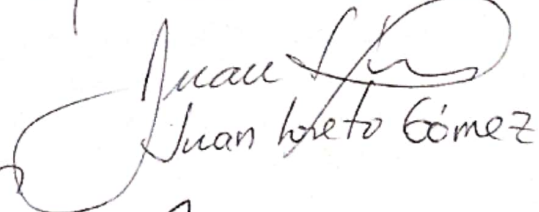 Juan
Juan Loreto Gómez